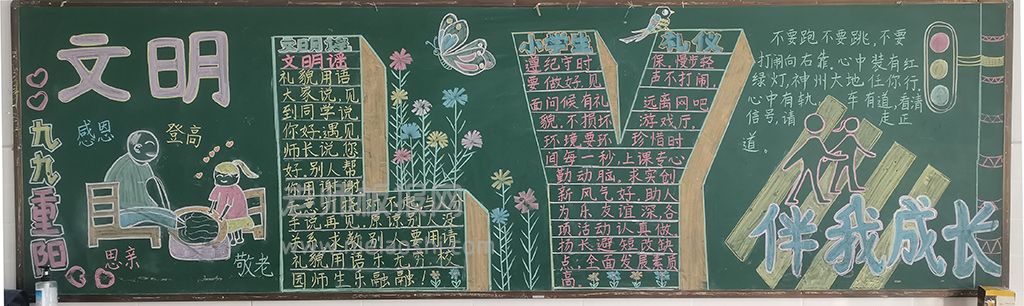 文明
九九重阳
感恩
登高
思亲
敬老
文明谣
文明谣
礼貌用语
大家说,见
到同学说
你好,遇见
师长说您
好,别人帮
你用谢谢,
无意冒犯对不起,与人分
手说再见,原谅别人没
关系,求教别人要用请,
礼貌用语乐充实,校
园师生乐融融!
小学生礼仪
遵纪守时 保,慢步轻
要做好,见 声不打闹,
面问候有礼 远离网吧
貌,不损坏 游戏厅,
环境要环 珍惜时
间每一秒,上课专心
勤动脑,求实创
新风气好,助人
为乐友谊深,各
项活动认真做,
扬长避短改缺
点,全面发展素质
高。
不要跑不要跳,不要
打闹向右靠,心中装有红
绿灯,神州大地任你行,
心中有轨,车有道,看清
信号,请走正
道。
伴我成长